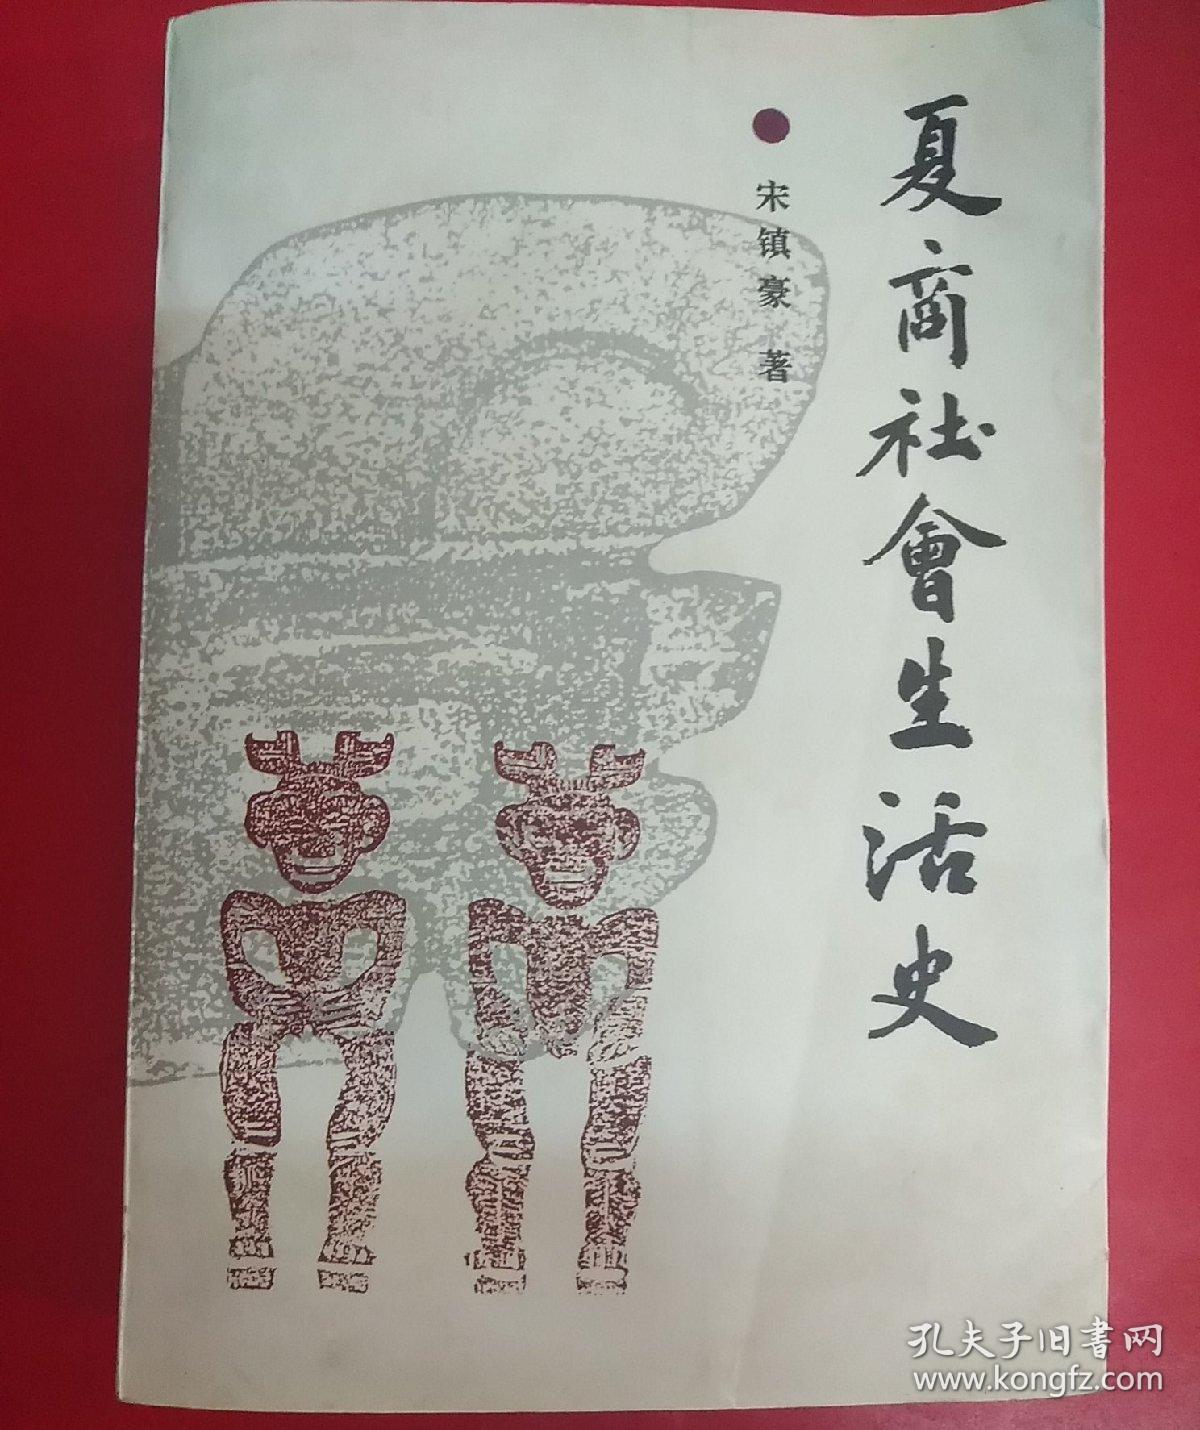 夏商社會生活史
宋镇豪 著
孔夫子旧書网
www.kongfz.com